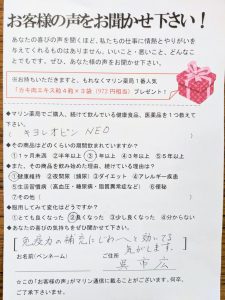 お客様の声をお聞かせ下さい！
あなたの喜びの声を聞くほど、私たちの仕事に情熱とやりがいを
与えてくれるものはありません。いいこと・悪いこと、どんなこ
とでもです。ぜひ、あなた様の声をお聞かせ下さい。
※お持ちいただきますと、もれなくマリン薬局１番人気
「カキ肉エキス粒４粒×３袋（972円相当）プレゼント！
◆マリン薬局でご購入、続けて飲んでいる健康食品、医薬品を１つ教えて
下さい。
（キヨレオピン NEO
）
◆その商品はどのくらいの期間飲まれていますか？
①１ヶ月未満 ②半年以上 ③１年以上 ④３年以上 ⑤５年以上
◆また、その商品を飲み始めた理由、続けている理由は？
①健康維持 ②夜間尿（頻尿） ③ダイエット ④アレルギー疾患
⑤生活習慣病（高血圧・糖尿病・脂質異常症など） ⑥便秘
⑦その他（ ）
◆服用してみて変化はどうですか？
①とても良くなった ②良くなった ③少し良くなった ④分からない
◆あなたの喜びの気持ちをぜひお聞かせ下さい。
免疫力の補充にじわーっと効いてる
気がします。
お名前（ペンネーム） ご住所 呉市広
☆この「お客様の声」がマリン通信に載ることがございます。何卒、
ご了承下さいませ。